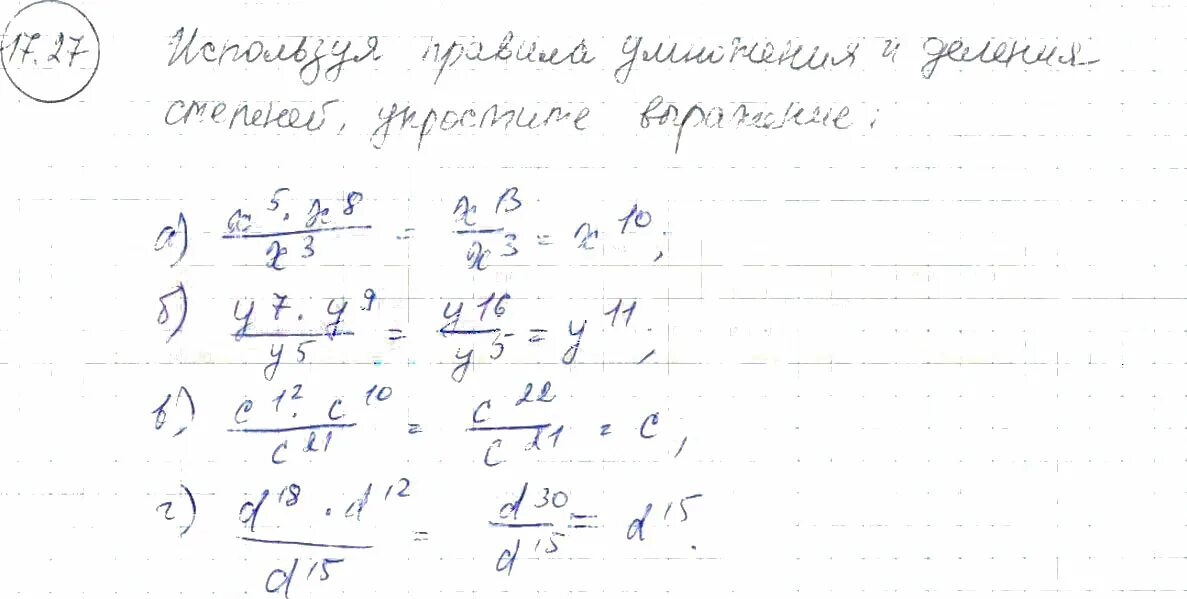 17.27 Используя правила умножения и деления
степеней, упростите выражение:
а) x^5 · x^8 / x^3 = x^13 / x^3 = x^10;
б) y^7 · y^9 / y^5 = y^16 / y^5 = y^11;
в) c^12 · c^10 / c^21 = c^22 / c^21 = c,
г) d^18 · d^12 / d^15 = d^30 / d^15 = d^15.